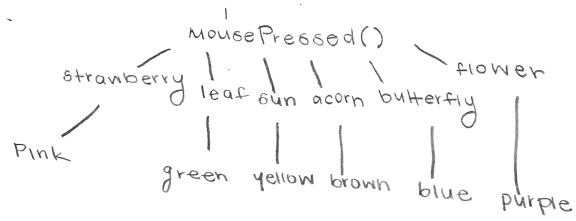 mousePressed()
strawberry leaf sun acorn butterfly flower
Pink green yellow brown blue purple